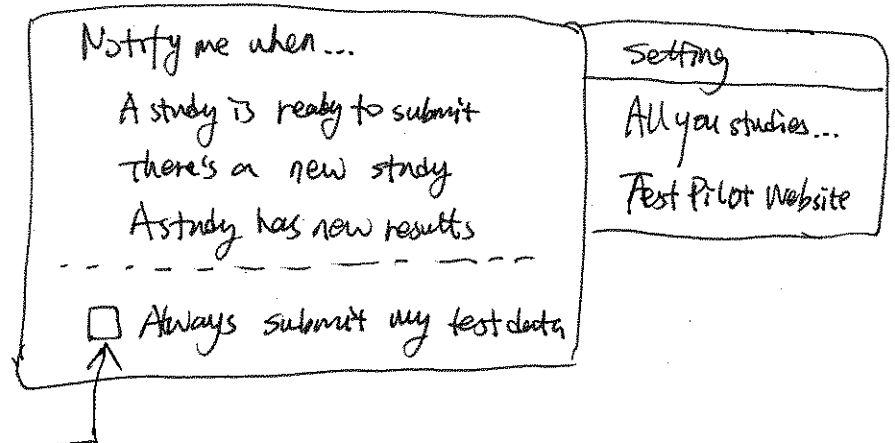 Notify me when...
A study is ready to submit
There's a new study
A study has new results
Always submit my test data
Setting
All you studies...
Test Pilot Website